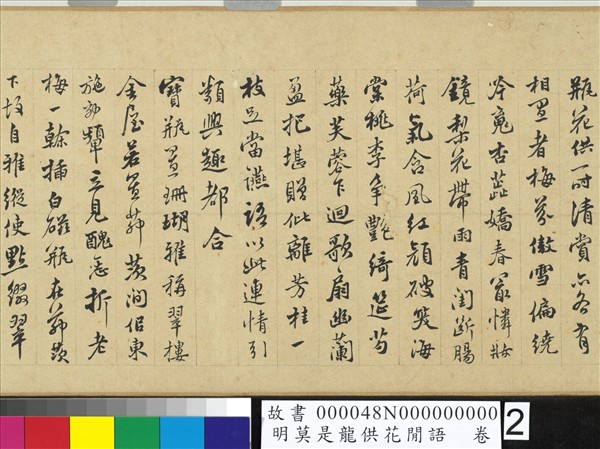 瓶花供一時清賞亦各有
相宜者梅芬傲雪偏繞
吟魂杏蕊嬌春最憐妝
鏡梨花帶雨青閨斷腸
荷氣含風紅顏破笑海
棠桃李爭艷綺筵芍
藥芙蓉乍迴歌扇幽蘭
盈把堪贈仳離芳桂一
枝足當讌語以此連情引
類興趣都合
寶瓶置珊瑚雅稱翠樓
金屋若置茆茨澗侶東
施効顰立見醜態折老
梅一幹插白磁瓶在茆茨
下故自雅縱使點綴翠
故書 000048N000000000 2
明莫是龍供花閒語 卷